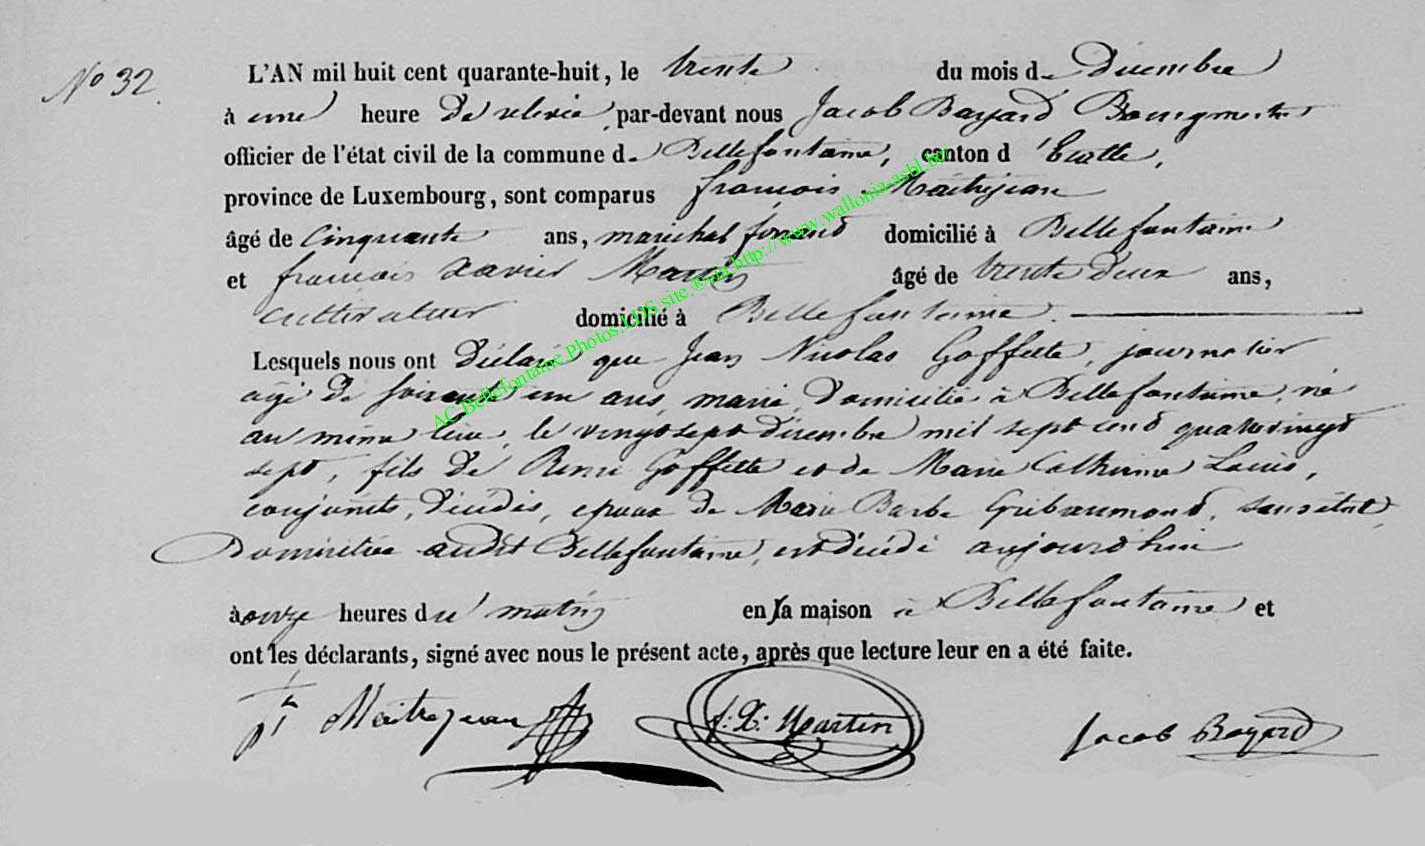 No 32
L'AN mil huit cent quarante-huit, le trente du mois de Décembre
à une heure de relevée, par-devant nous Jacob Bayard Bourgmestre
officier de l'état civil de la commune de Bellefontaine, canton d'Etalle,
province de Luxembourg, sont comparus françois Maitrejean
âgé de cinquante ans, maréchal ferrand domicilié à Bellefontaine
et françois xavier Martin âgé de trente deux ans,
cultivateur domicilié à Bellefontaine.
Lesquels nous ont déclaré que Jean Nicolas Goffette, journalier
agé de soixante un ans, marié, domicilié à Bellefontaine, né
au même lieu, le vingt sept décembre mil sept cent quatrevingt
sept, fils de Remi Goffette et de Marie Catherine Louis,
conjoints, décédés, epoux de Marie Barbe Gribaumond, sans état,
Domiciliée audit Bellefontaine, est décédé aujourd'hui
à onze heures du matin en sa maison à Bellefontaine et
ont les déclarants, signé avec nous le présent acte, après que lecture leur en a été faite.
Maitrejean f: X: Martin Jacob Bayard
AC.Bellefontaine.Photos.LDS.site.®via http://www.wallonia-asbl.be